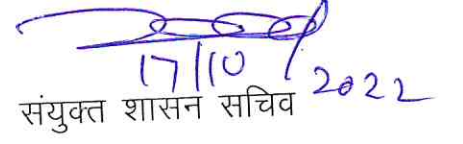 17/10/2022
संयुक्त शासन सचिव